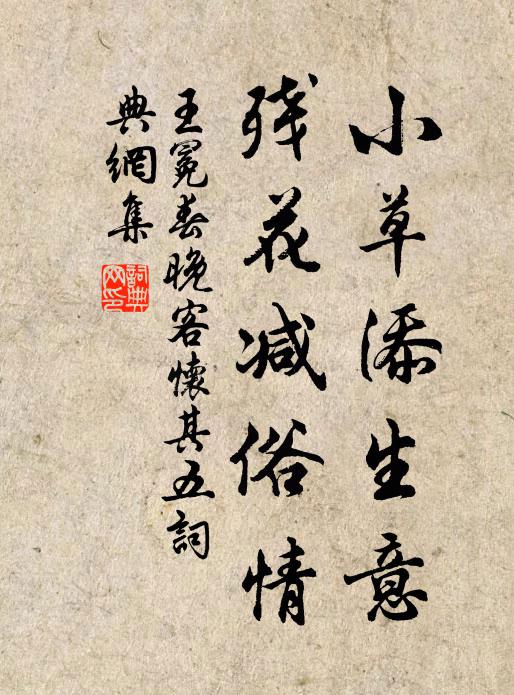 小草添生意
残花减俗情
王冕春晚客懷其五詞
典網集
詞典網印